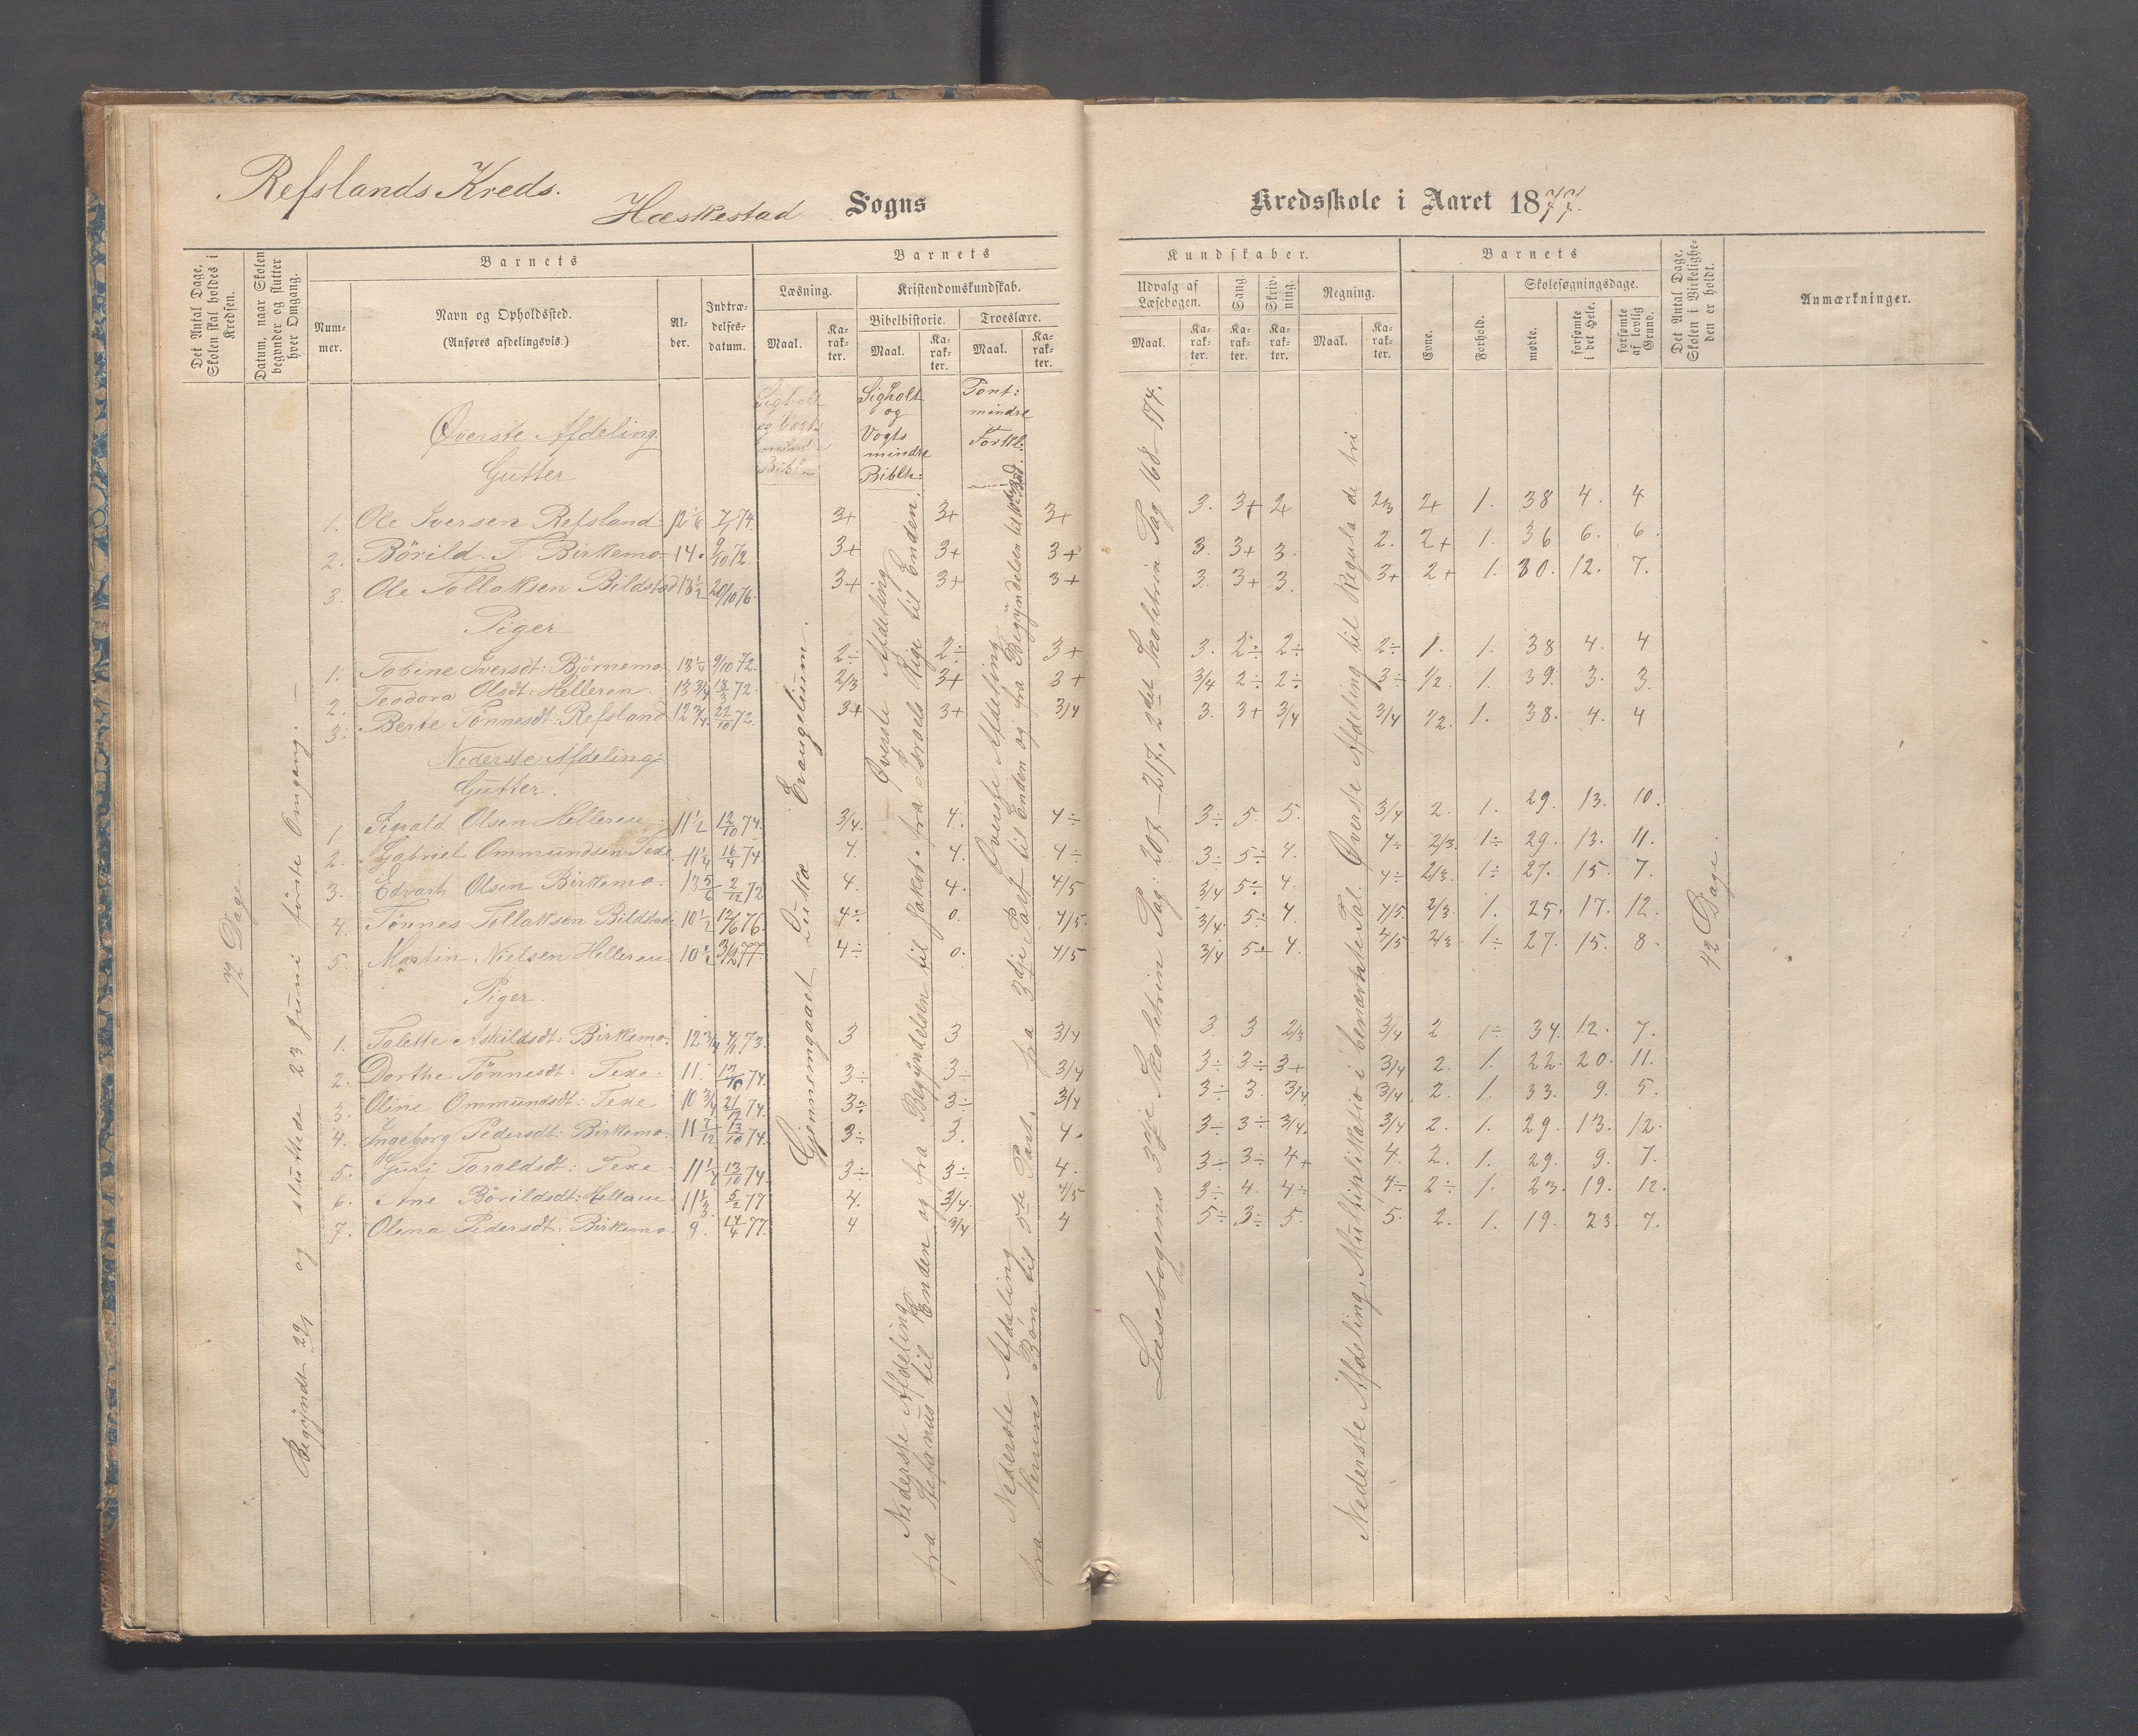 Refslands Kreds.
Hæskestad Sogns
Kredsskole i Aaret 1877.
Det Antal Dage, Skolen skal holdes i Kredsen.
Datum, naar Skolen begynder og slutter hver Omgang.
Barnets
Num-
mer.
Navn og Opholdssted.
(Anføres afdelingsvis.)
Al-
der.
Indtræ-
delses-
datum.
Barnets
Læsning.
Maal.
Ka-
rak-
ter.
Kristendomskundskab.
Bibelhistorie.
Maal.
Ka-
rak-
ter.
Troeslære.
Maal.
Ka-
rak-
ter.
Kundskaber.
Udvalg af
Læsebogen.
Maal.
Ka-
rak-
ter.
Sang
Ka-
rak-
ter.
Skriv-
ning.
Ka-
rak-
ter.
Regning.
Maal.
Ka-
rak-
ter.
Barnets
Evne.
Forhold.
Skolesøgningsdage.
mødte.
forsømte
i det Hele.
forsømte
af lovlig
Grund.
Det Antal Dage,
Skolen i Virkelighe-
den er holdt.
Anmærkninger.
72 Dage
Begyndt 29/1 og sluttede 23 Juni første Omgang. —
Sigholt
og Vogts
mindre
Biblh
Sigholt
og
Vogts
mindre
Biblh:
Pont:
mindre
Forkl:
Øverste Afdeling
Gutter
1. Ole Iversen Refsland 12 1/6 7/1 74. 3+ 3+ 3+ 3. 3+ 2+ 2/3 2+ 1. 38 4. 4
2. Børild. T. Birkemo 14. 9/10 72. 3+ 3+ 3+ 3. 3+ 3. 2. 2+ 1. 36 6. 6.
3. Ole Tollaksen Bildstad 13 1/2 20/10 76. 3+ 3+ 3+ 3. 3+ 3. 3+ 2+ 1. 30. 12. 7.
Piger
1. Tobine Iversdt: Bjørnemo 13 1/4 9/10 72. 2÷ 2÷ 3+ 3. 2÷ 2÷ 2÷ 1. 1. 38 4. 4
2. Teodora Olsdt: Helleren. 13 3/4 18/3 72. 2/3 3+ 3+ 3/4 2÷ 2÷ 3÷ 1/2. 1. 39. 3. 3.
3. Berte Tønnesdt: Refsland 12 3/4 22/10 72. 3+ 3+ 3/4 3. 3+ 3/4 3/4 1/2. 1. 38. 4. 4
Nederste Afdeling
Gutter.
1. Sigvald Olsen Helleren 11 1/2 12/10 74. 3/4. 4. 4÷ 3÷ 5. 5. 3/4 2. 1. 29. 13. 10.
2. Gabriel Ommundsen Texe 11 1/4 16/4 74. 4. 4. 4÷ 3÷ 5÷ 4. 4÷ 2/3. 1÷ 29. 13. 11.
3. Edvart Olsen Birkemo. 13 5/6 2/12 72 4. 4. 4/5 3/4 5÷ 4. 4÷ 2/3. 1÷ 27. 15. 7.
4. Tønnes Tollaksen Bildstad 10 1/2 12/6 76. 4÷ 0. 4/5. 3/4. 5÷ 4. 4/5. 2/3. 1. 25. 17. 12.
5. Martin Nielsen Helleren 10 1/2 3/2 77. 4÷ 0. 4/5 3/4 5÷ 4. 4/5 2/3 1÷ 27. 15. 8.
Piger.
1. Talette Askildsdt: Birkemo. 12 3/4 4/1 73. 3 3 3/4 3 3 2/3 3/4 2 1÷ 34. 12. 7.
2. Dorthe Tønnesdt: Texe. 11. 12/10 74. 3÷ 3÷ 3/4 3÷ 3÷ 3+ 3/4 2. 1. 22. 20. 11.
3. Oline Ommundsdt: Texe 10 3/4 21/12 74. 3÷ 3÷ 3/4 3÷ 3. 3/4 3/4. 2. 1. 33. 9. 5.
4. Ingeborg Pedersdt: Birkemo. 11 7/12 13/10 74. 3÷ 3. 4. 3÷ 3÷ 3/4. 3/4 2. 1. 29. 13. 12.
5. Guri Taraldsdt: Texe 11 1/4 13/10 74. 3÷ 3÷ 4. 3÷ 3÷ 4+ 4. 2. 1. 29. 9. 7.
6. Ane Børildsdt: Helleren 11 1/3 5/2 77 4. 3/4. 4/5 3÷ 4. 4÷ 4÷ 2÷ 1. 23. 19. 12.
7. Olena Pedersdt: Birkemo 9. 14/4 77. 4 3/4 4 5÷ 3÷ 5. 5. 2. 1. 19. 23. 7.
Gjennemgaaet Lukæ Evangelium.
Øverste Afdeling
fra Begyndelsen til Jakob. fra Israels Rige til Enden.
Nederste Afdeling
fra Stefanus til Enden og
Øverste Afdeling
fra 3die Part til Enden og fra Begyndelsen til
Nederste Afdeling
fra Herrens Bøn til 5te Part.
Læsebogens 3die Skoletrin Pag: 207-217, 2det Skoletrin Pag 168-174.
Nederste Afdeling, Multiplikatio i benævnte Tal. Øverste Afdeling til Regula de tri
42 Dage.